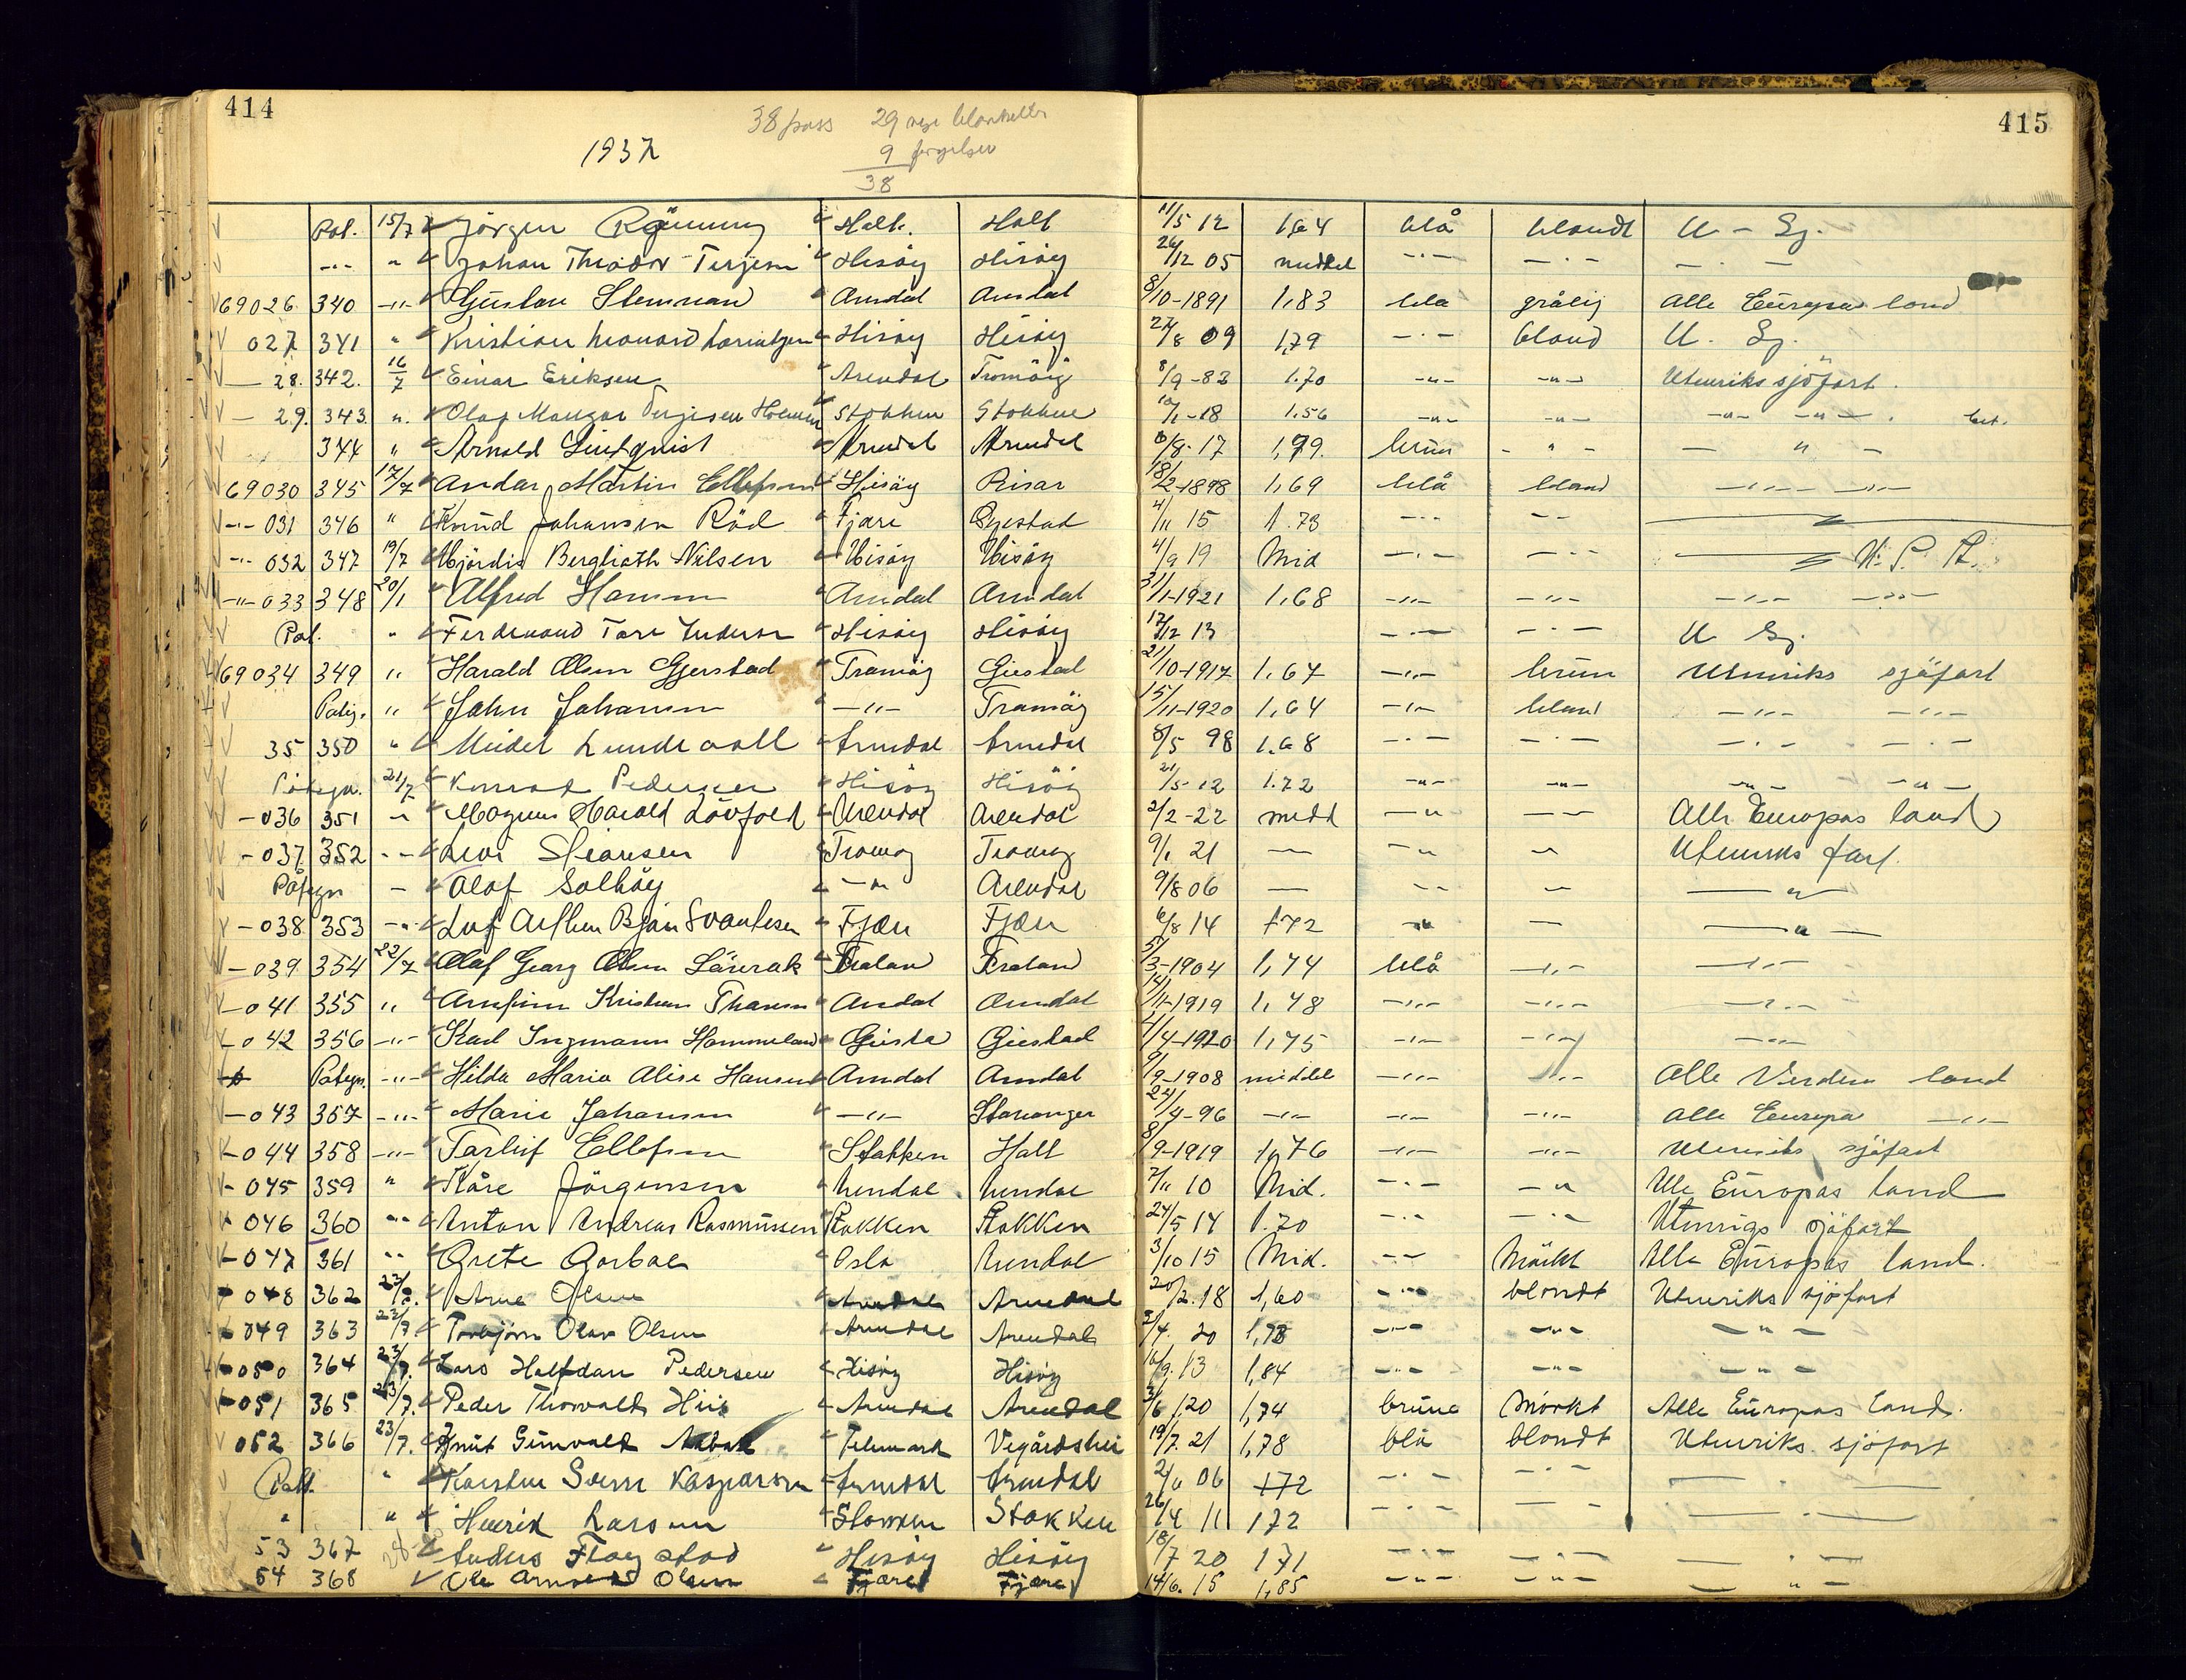 414
415
1937
38 pass 29 nye blanketter
9 fornyelser
38
Pat. 15/7 Jörgen Rönning Holt. Holt 11/5 12 1,64 blå blondt U - Sj.
-"- " Johan Theodor Terjesen Hisöy Hisöy 26/12 05 middel -"- -"- - " -
69026 340 -"- Gustav Stenman Arendal Arendal 8/10-1891 1,83 blå grålig Alle Europas land
027 341 " Kristian Leonard Hisöy Hisöy 27/8 09 1,79 -"- blond U. Sj.
28. 342. 16/7 Einar Eriksen Arendal Tromöy 8/9-83 1.70 -"- -"- Utenriks sjöfart.
29. 343. ". Olaf Terjesen Stokken Stokken 1-18 1.56 -"- -"- -"- -"-
344 " Arnold Lindqvist Arendal Arendal 8-17 1,79. brun - " - - " -
69030 345 17/7 Andor Martin Ellefsen Hisöy Risör 18/2-1898 1,69 blå blond -"- -"-
-"- 031 346 " Knud Johansen Röd Fjære Gjerstad 4/11 15 1.73 -"- -"-
-"- 032 347 19/7 Hjördis Berglioth Nilsen Hisöy Hisöy 4/9 19 Mid -"- -"-
-"- 033 348 20/7 Alfred Hansen Arendal Arendal 31/1-1921 1,68 -"- -"- -"- -"-
Pat. " Ferdinand Tore Andersen Hisöy Hisöy 17/12 13 -"- -"- U Sj.
69034 349 " Harald Olsen Gjerstad Tromöy Gjerstad 21/10-1917 1,67 -"- brun Utenriks sjöfart
Pateg. " John Johansen -"- Tromöy 15/11-1920 1,64 -"- blond -"- -"-
35 350 " Meidel Lundevold Arendal Arendal 8/5 98 1.68 -"- -"- -"- -"-
Påtegn. 21/7 Konrad Pedersen Hisöy Hisöy 21/5-12 1.72 -"- -"- -"- -"-
-036 351 " Magnus Harald Lövfold Arendal Arendal 2/2-22 midd -"- -- Alle Europas land
-037 352 -"- Stiansen Tromöy Tromöy 9/1 21 — -"- " Utenriks fart.
Påtegn - Olaf Solhöy -"- Arendal 9/8 06 — -- " -"-
-038 353 -"- Leif Arthur Bjön Svantesen Fjære Fjære 6/8 14 172 -"- — -"-
-039 354 22/7 Olaf Georg Olsen Froland Froland 5/3-1904 1,74 blå -"- -"-
-041 355 " Arnfinn Kristian Arendal Arendal 14/11-1919 1,78 -"- -"- -"-
-042 356 -"- Karl Ingmann Hommeland Gjersta Gjerstad 1/4-1920 1,75 -"- -"- -"-
Pategn. -"- Hilda Maria Alise Hansen Arendal Arendal 9/9-1908 middel -"- -"- Alle Verdens land
-043 357 -"- Marie Johansen -"- Stavanger 22/4-96 -"- -"- -"- Alle Europa -"-
-044 358 -"- Tarleif Ellefsen Stokken Holt 8/9-1919 1,76 -"- -"- Utenriks sjöfart
-045 359 " Kåre Jörgensen Arendal Arendal 2/11 10 Mid. -"- -" Alle Europas land
046 360 -"- Anton Andreas Rasmussen Stokken Stokken 24/5 14 1.70 -"- -"- Utenrigs sjöfart
-047 361 -"- Grete Oslo Arendal 3/10 15 Mid. -"- Mörkt Alle Europas land.
048 362 23/7. Arne Olsen Arendal Arendal 20/2.18 1,60 -"- blondt Utenriks sjöfart
049 363 23/7 Torbjörn Olav Olsen Arendal Arendal 2/4. 20 1,78 -"- -"- -"-
-050 364 23/7. Lars Halfdan Pedersen Hisöy Hisöy 16/9.13 1,84 -"- -"- -"-
-051 365 23/7. Peder Thorvald Hiis Arendal Arendal 3/6.20 1,74 brune Mörkt Alle Europas land.
052 366 23/7. Knut Gunvald Telemark Vegårdshei 19/7.21 1,78 blå blondt Utenriks. sjöfart
Patt. " Karsten Sverre Kaspersen Arendal Arendal 2/11 06 172 -"- -"-
" " Henrik Larsen Stokken Stokken 26/4 11 172 -"- -"-
53 367 28 Anders Fløystad Hisöy Hisöy 18/7 20 171 -"- -"- -"-
54 368 Ole Arnold Olsen Fjære Fjære 14/6.15 1,85 -"- -"- -"-